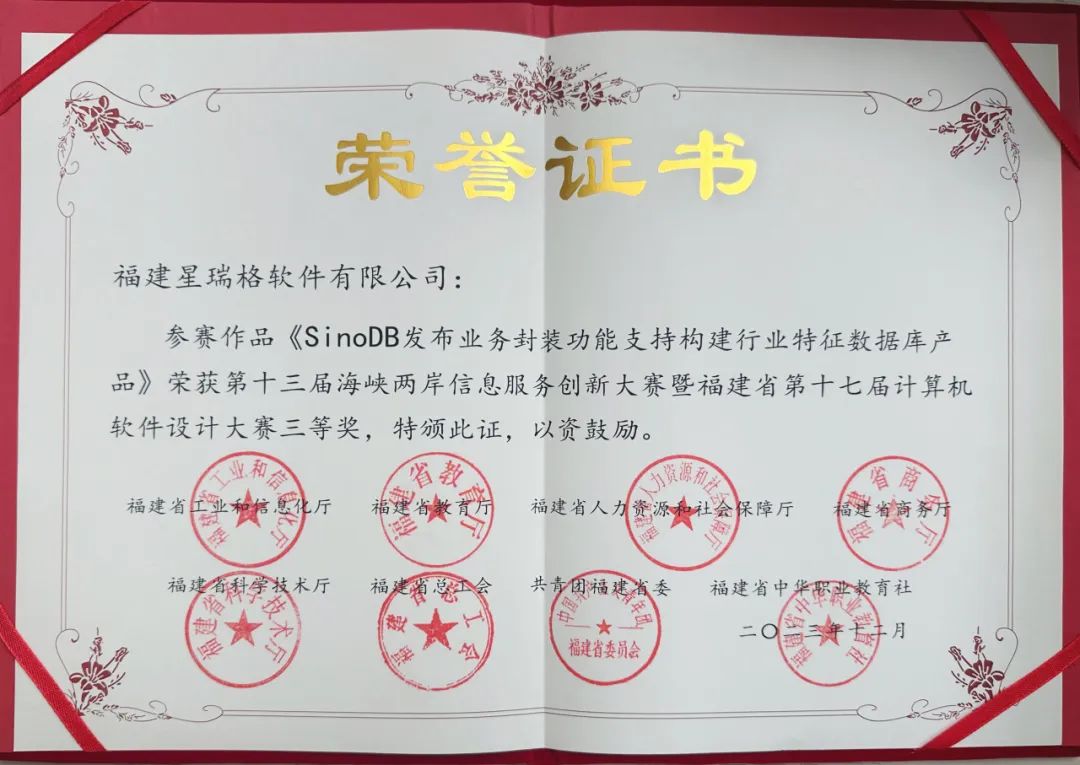 荣誉证书
福建星瑞格软件有限公司：
参赛作品《SinoDB发布业务封装功能支持构建行业特征数据库产
品》荣获第十三届海峡两岸信息服务创新大赛暨福建省第十七届计算机
软件设计大赛三等奖，特颁此证，以资鼓励。
福建省工业和信息化厅 福建省教育厅 福建省人力资源和社会保障厅 福建省商务厅
福建省工业和信息化厅
福建省教育厅
福建省人力资源和社会保障厅
福建省商务厅
福建省科学技术厅 福建省总工会 共青团福建省委 福建省中华职业教育社
福建省科学技术厅
福建省总工会
福建省委员会
福建省中华职业教育社
二〇二三年十二月